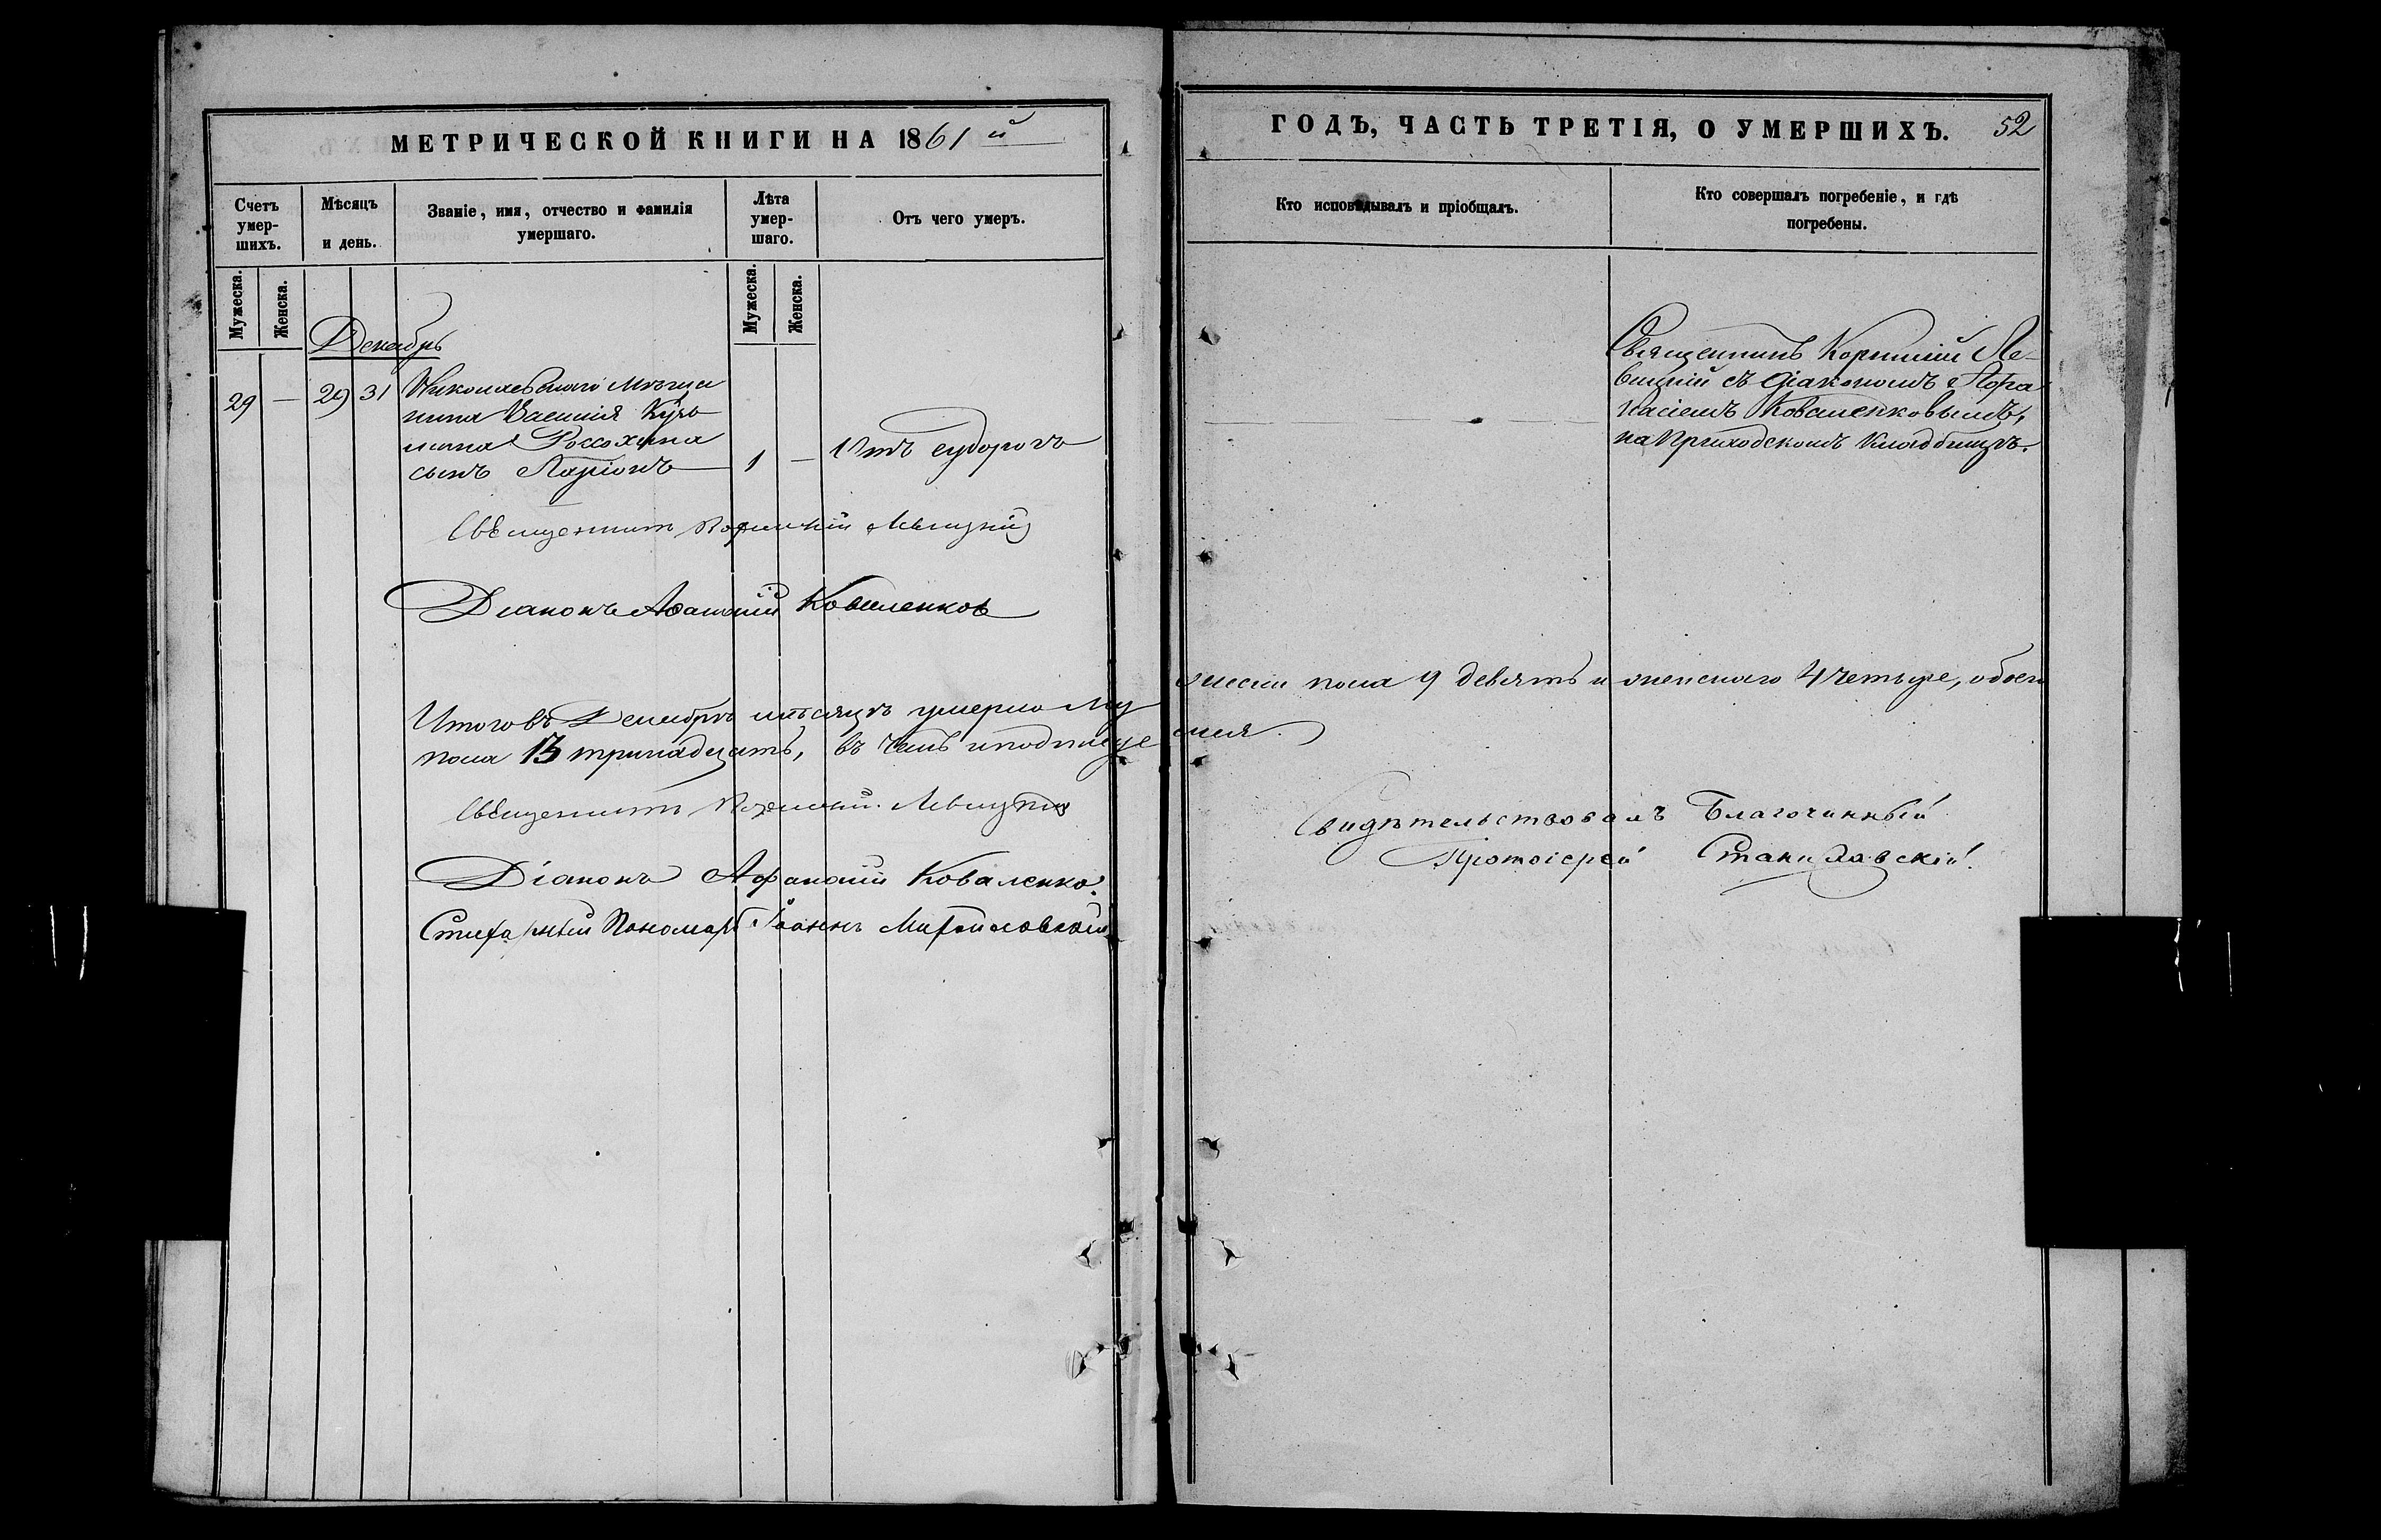 МЕТРИЧЕСКОЙ КНИГИ НА 1861й
Счетъ умер-шихъ.
Мѣсяцъ и день.
Званіе, имя, отчество и фамилія умершаго.
Лѣта умер-шаго.
Отъ чего умеръ.
Мужеска.
Женска.
Мужеска.
Женска.
Декабрь
29 — 29 31 Николаевскаго мѣща
нина Василія Кузь
мина Россохина
сынъ Ларіонъ — 1 — Отъ судорогъ
Священникъ Корнилій Левицкій
Діаконъ Аѳанасій Коваленковъ
Итого въ Декабрѣ мѣсяцѣ умерло Му
пола 13 тринадцать, въ чемъ и подписуе
Священникъ Корнилій Левицкій
Діаконъ Афанасій Коваленко.
Стихарный Пономарь Іоаннъ
ГОДЪ, ЧАСТЬ ТРЕТІЯ, О УМЕРШИХЪ. 52
Кто исповѣдывалъ и пріобщалъ.
Кто совершалъ погребеніе, и гдѣ
погребены.
Священникъ Корнилій Ле-
вицкій съ Діакономъ Афа
насіемъ Коваленковымъ,
на приходскомъ кладбищѣ.
жеска пола 9 девять и женскаго 4 четыре, обоего
мся.
Свидѣтельствовалъ Благочинный
Протоіерей Станиславскій.